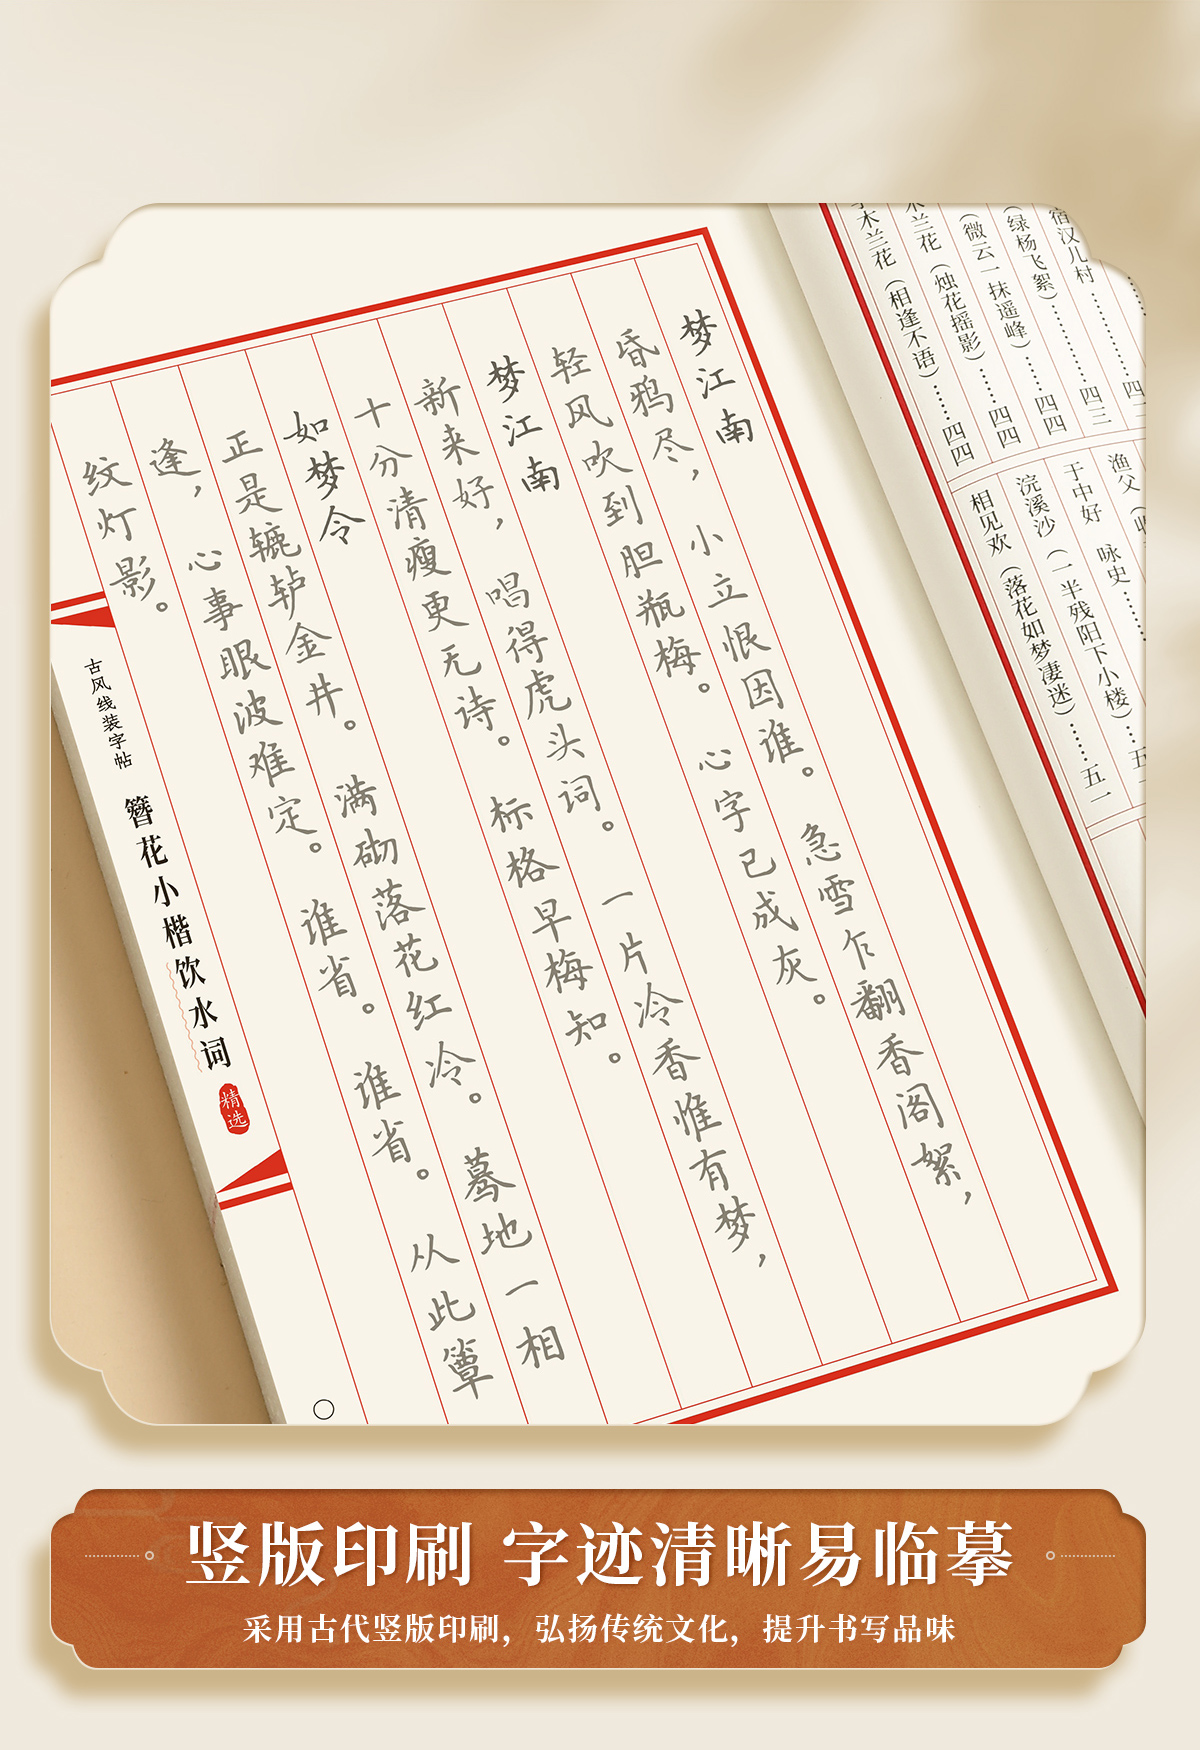 宿汉儿村……………
（绿杨飞絮）……………四三
（微云一抹遥峰）……四四
木兰花（烛花摇影）……四四
木兰花（相逢不语）……四四
渔父
于中好 咏史……
浣溪沙（一半残阳下小楼）…五
相见欢（落花如梦凄迷）……五一
梦江南
昏鸦尽，小立恨因谁。急雪乍翻香阁絮，
轻风吹到胆瓶梅。心字已成灰。
梦江南
新来好，唱得虎头词。一片冷香惟有梦，
十分清瘦更无诗。标格早梅知。
如梦令
正是辘轳金井。满砌落花红冷。蓦地一相
逢，心事眼波难定。谁省。谁省。从此簟
纹灯影。
古风线装字帖 簪花小楷饮水词 精选
竖版印刷 字迹清晰易临摹
采用古代竖版印刷，弘扬传统文化，提升书写品味